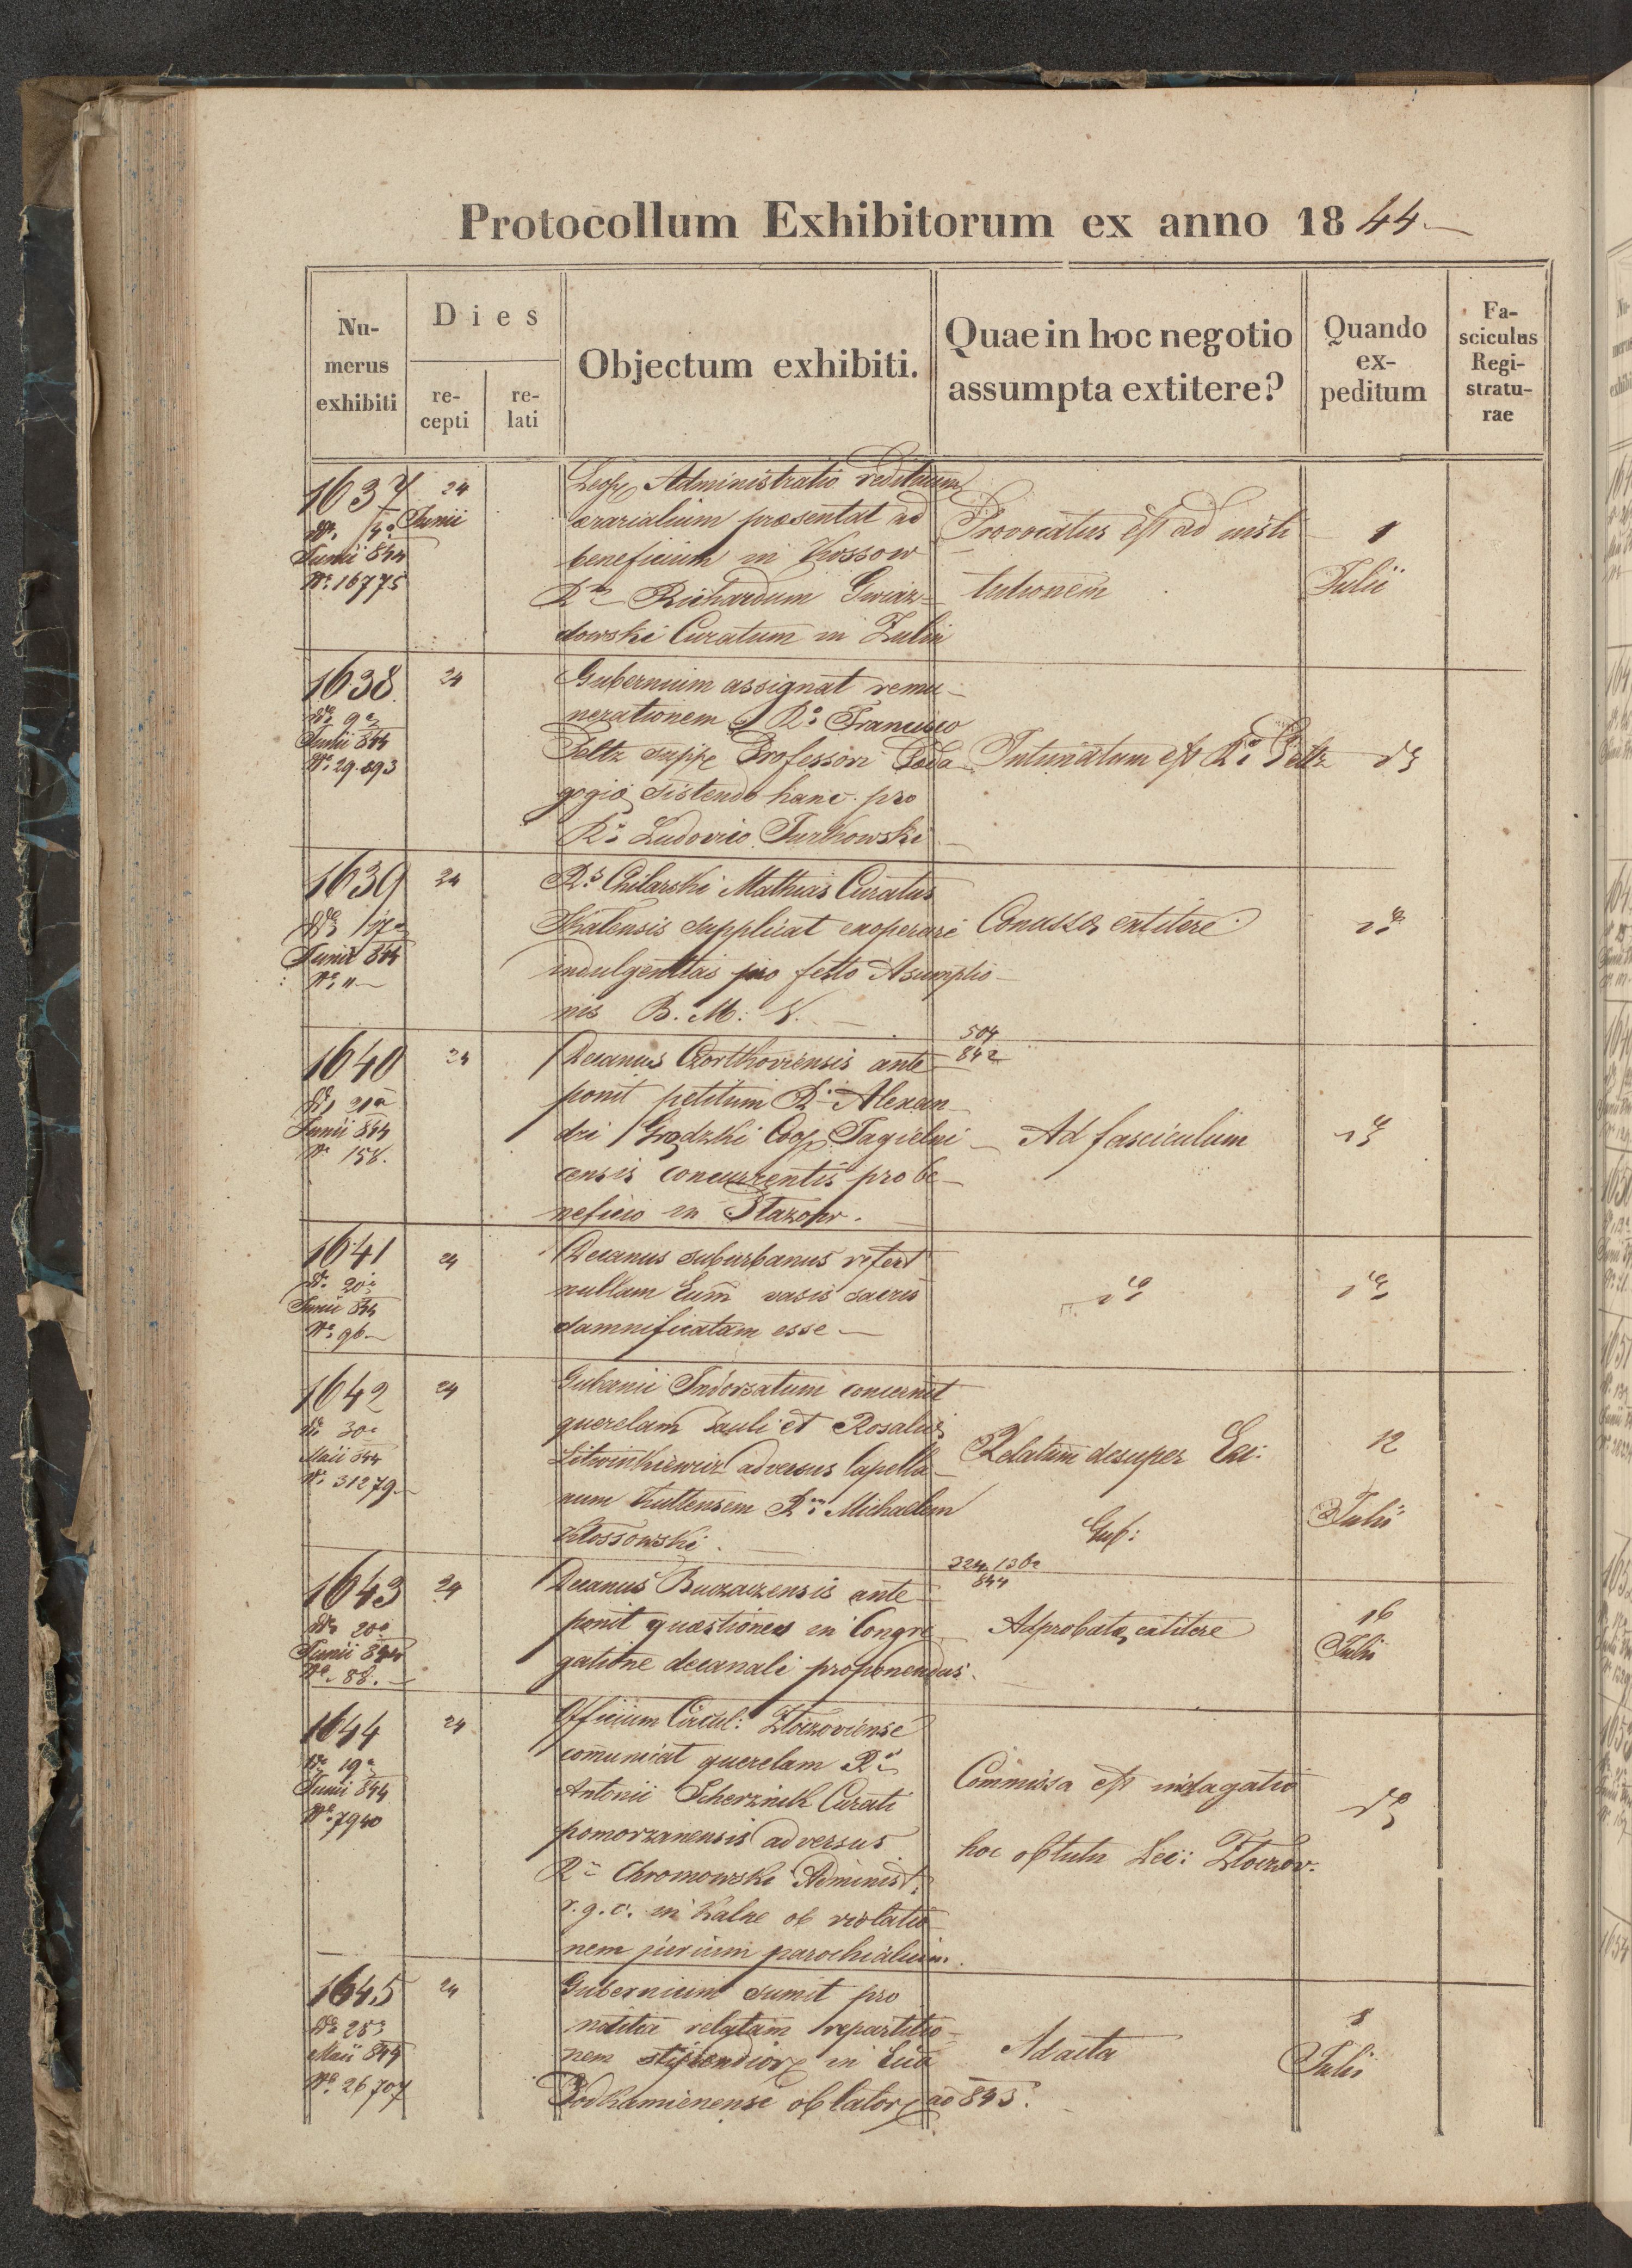 Protocollum Exhibitorum ex anno 1844
Nu-
merus
exhibiti
Dies
re-
cepti
re-
lati
Objectum exhibiti.
Quae in hoc negotio
assumpta extitere?
Quando
ex-
peditum
Fa-
sciculus
Regi-
stratu-
rae
1637
Junii 844
Nº 16775
24
Junii
Administratio redituum
aerarialium praesentat ad
beneficium in Kossow
Rm Richardum Gwiaz=
dowski Curatum in Zulin
Provocatus est ad insti
tutionem
8
Julii
1638
dº 9a
Junii 844
Nº 29.893
24
Gubernium assignat remu-
nerationem Rº Francisco
Peltz Professori Peda
gogiae sistendo hanc pro
Rº Ludovico Turkowski
Intimatum est Rº Peltz
dº
1639
dº 17a
Junii 844
Nº "
24
Rs Chilarski Mathias Curatus
Skalensis supplicat exoperari
indulgentias pro festo Asumptio-
nis B. M. V.
extitere
dº
1640
dº 21a
Junii 844
Nº 158.
24
Decanus Czortkoviensis ante
ponit petitum Ri Alexan
dri Grądzki Coop Jagielni
censis concurrentis pro be-
neficio in
504
842
Ad fasciculum
dº
1641
dº 20a
Junii 844
Nº 96
24
Decanus suburbanus refert
nullam Eccm vasis sacris
damnificatam esse
dº
dº
1642
dº 30a
Maii 844
Nº 31279
24
Gubernii Indorsatum concernit
querelam Pauli et Rosaliae
adversus Capella-
num Kuttensem Rm Michaelem
Klossowski.
Relatum desuper Exc:
Gub:
12
Julii
1643
dº 20a
Junii 844
Nº 88.
24
Decanus Buczaczensis ante
ponit quaestiones in Congre
gatione decanali proponendas.
324, 1362
844
Adprobatae extitere
16
Julii
1644
dº 19a
Junii 844
Nº 7940
24
Officium Circul: Zloczoviense
comunicat querelam Ri
Antonii Scherznik Curati
pomorzanensis adversus
Rm Chromowski Administ:
r. g. c. in Kalne ob violatio
nem jurium parochialium.
Commissa est indagatio
hoc obtutu Dec: Zloczov.
dº
1645
dº 25a
Maii 844
Nº 26707
24
Gubernium sumit pro
notitia relatam repartitio-
nem stipendior in Ecca
Podkamienensi oblator ao 843.
Ad acta
8
Julii